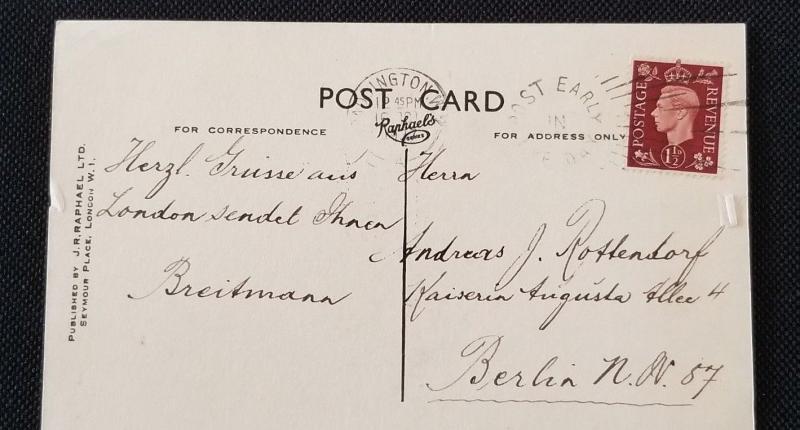 POST CARD
Raphael's
FOR CORRESPONDENCE
FOR ADDRESS ONLY
POST EARLY
IN
POSTAGE
REVENUE
1½D
45 PM
Herzl. Grüsse aus
London sendet Ihnen
Breitmann
Herrn
Andreas J. Rottendorf
Kaiserin Augusta Allee 4
Berlin N.W. 87
PUBLISHED BY J.R. RAPHAEL LTD.
SEYMOUR PLACE, LONDON W.1.